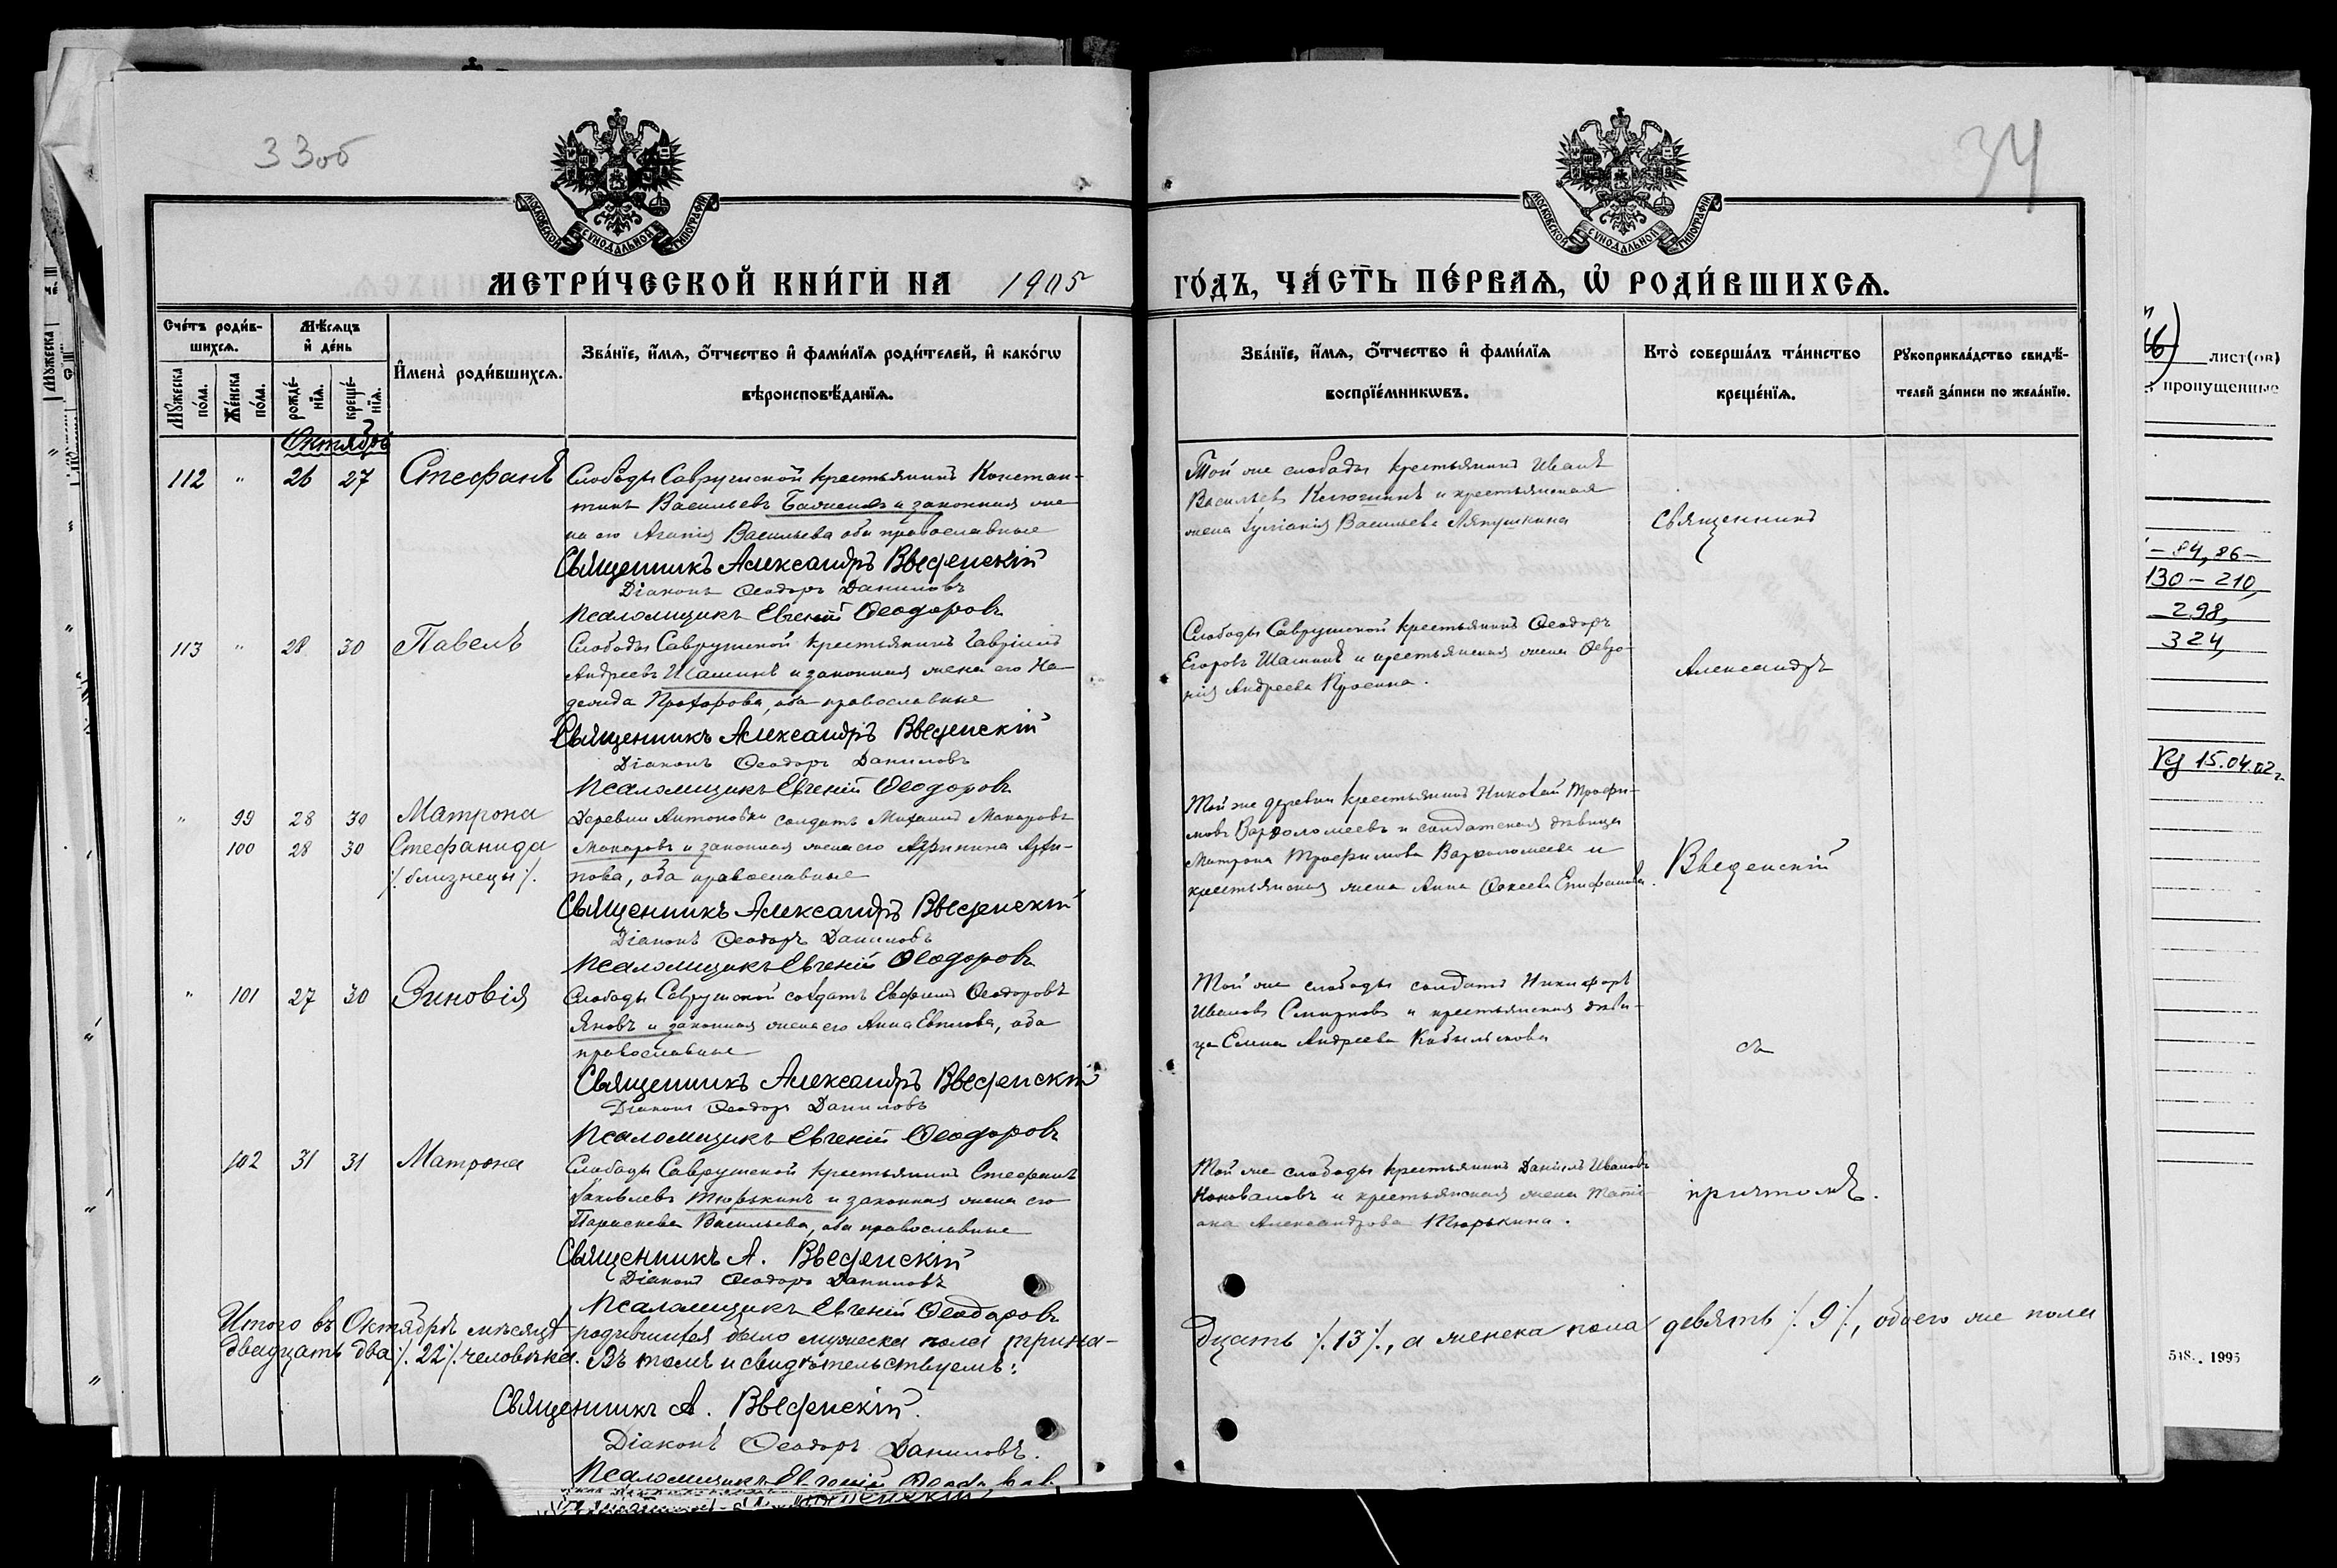 33об
34
МОСКОВСКОЙ СѴНОДАЛЬНОЙ ТИПОГРАФІИ
МОСКОВСКОЙ СѴНОДАЛЬНОЙ ТИПОГРАФІИ
МЕТРИ́ЧЕСКОЙ КНИ́ГИ НА 1905
ГО́ДЪ, ЧА́СТЬ ПЕ́РВАѦ, Ѡ҆ РОДИ́ВШИХСѦ.
Сче́тъ роди́в-
шихсѧ.
Мꙋ́жеска по́ла.
Же́нска по́ла.
Мѣ́сѧцъ
и҆ де́нь
рожде́-
нїѧ.
креще́-
нїѧ.
И҆мена̀ роди́вшихсѧ.
Зва́нїе, и҆́мѧ, о҆́тчество и҆ фами́лїѧ роди́телей, и҆ како́гѡ
вѣроисповѣ́данїѧ.
Зва́нїе, и҆́мѧ, о҆́тчество и҆ фами́лїѧ
воспрїе́мникѡвъ.
Кто̀ соверша́лъ та́инство
креще́нїѧ.
Рꙋкоприкла́дство свидѣ́-
телей за́писи по жела́нїю.
Октябрь
112 " 26 27 Стефанъ
Слободы Саврушской крестьянинъ Констан-
тинъ Васильевъ и законная же-
на его Васильева оба православные
Священникъ Александръ Введенскій
Діаконъ Ѳеодоръ Даниловъ
Псаломщикъ Евгеній Ѳеодоровъ
Той же слободы крестьянинъ Иванъ
Васильевъ и крестьянская
жена Іуліанія Васильева Ляпушкина
Священникъ
113 " 28 30 Павелъ
Слободы Саврушской крестьянинъ Гавріилъ
Андреевъ Шашинъ и законная жена его На-
дежда Прохорова, оба православные
Священникъ Александръ Введенскій
Діаконъ Ѳеодоръ Даниловъ
Псаломщикъ Евгеній Ѳеодоровъ
Слободы Саврушской крестьянинъ Ѳеодоръ
Егоровъ Шашинъ и крестьянская жена Февро-
нія Андреева
Александръ
" 99 28 30 Матрона
100 28 30 Стефанида
/. близнецы /.
Деревни Антоновки солдатъ Михаилъ Макаровъ
Макаровъ и законная жена его Агрипина Архи-
пова, оба православные
Священникъ Александръ Введенскій
Діаконъ Ѳеодоръ Даниловъ
Псаломщикъ Евгеній Ѳеодоровъ
Той же деревни крестьянинъ Николай Трофи-
мовъ Варѳоломеевъ и солдатская дѣвица
Матрона Трофимова Варѳоломеева и
крестьянская жена Анна Епифанова.
Введенскій
" 101 27 30 Зиновія
Слободы Саврушской солдатъ Евфимій Ѳеодоровъ
Яновъ и законная жена его Анна, оба
православные
Священникъ Александръ Введенскій
Діаконъ Ѳеодоръ Даниловъ
Псаломщикъ Евгеній Ѳеодоровъ
Той же слободы солдатъ Никифоръ
Ивановъ Смирновъ и крестьянская дѣви-
ца Елена Андреева Кобылскова
съ
102 31 31 Матрона
Слободы Саврушской крестьянинъ Стефанъ
Яковлевъ Тюрькинъ и законная жена его
Параскева Васильева, оба православные
Священникъ А. Введенскій
Діаконъ Ѳеодоръ Даниловъ
Псаломщикъ Евгеній Ѳеодоровъ
Той же слободы крестьянинъ Даніилъ Ивановъ
Коноваловъ и крестьянская жена Тати-
ана Александрова Тюрькина.
причтомъ.
Итого въ Октябрѣ мѣсяцѣ родившихся было мужеска пола трина-
дцать /. 13 /., а женска пола девять /. 9 /., обоего же пола
двадцать два /. 22 /. человѣка. Въ томъ и свидѣтельствуемъ:
Священникъ А. Введенскій.
Діаконъ Ѳеодоръ Даниловъ.
Псаломщикъ Евгеній
лист(ов)
пропущенные
– 84, 86 –
130 – 210,
298,
324,
15.04.02г.
518. 1995